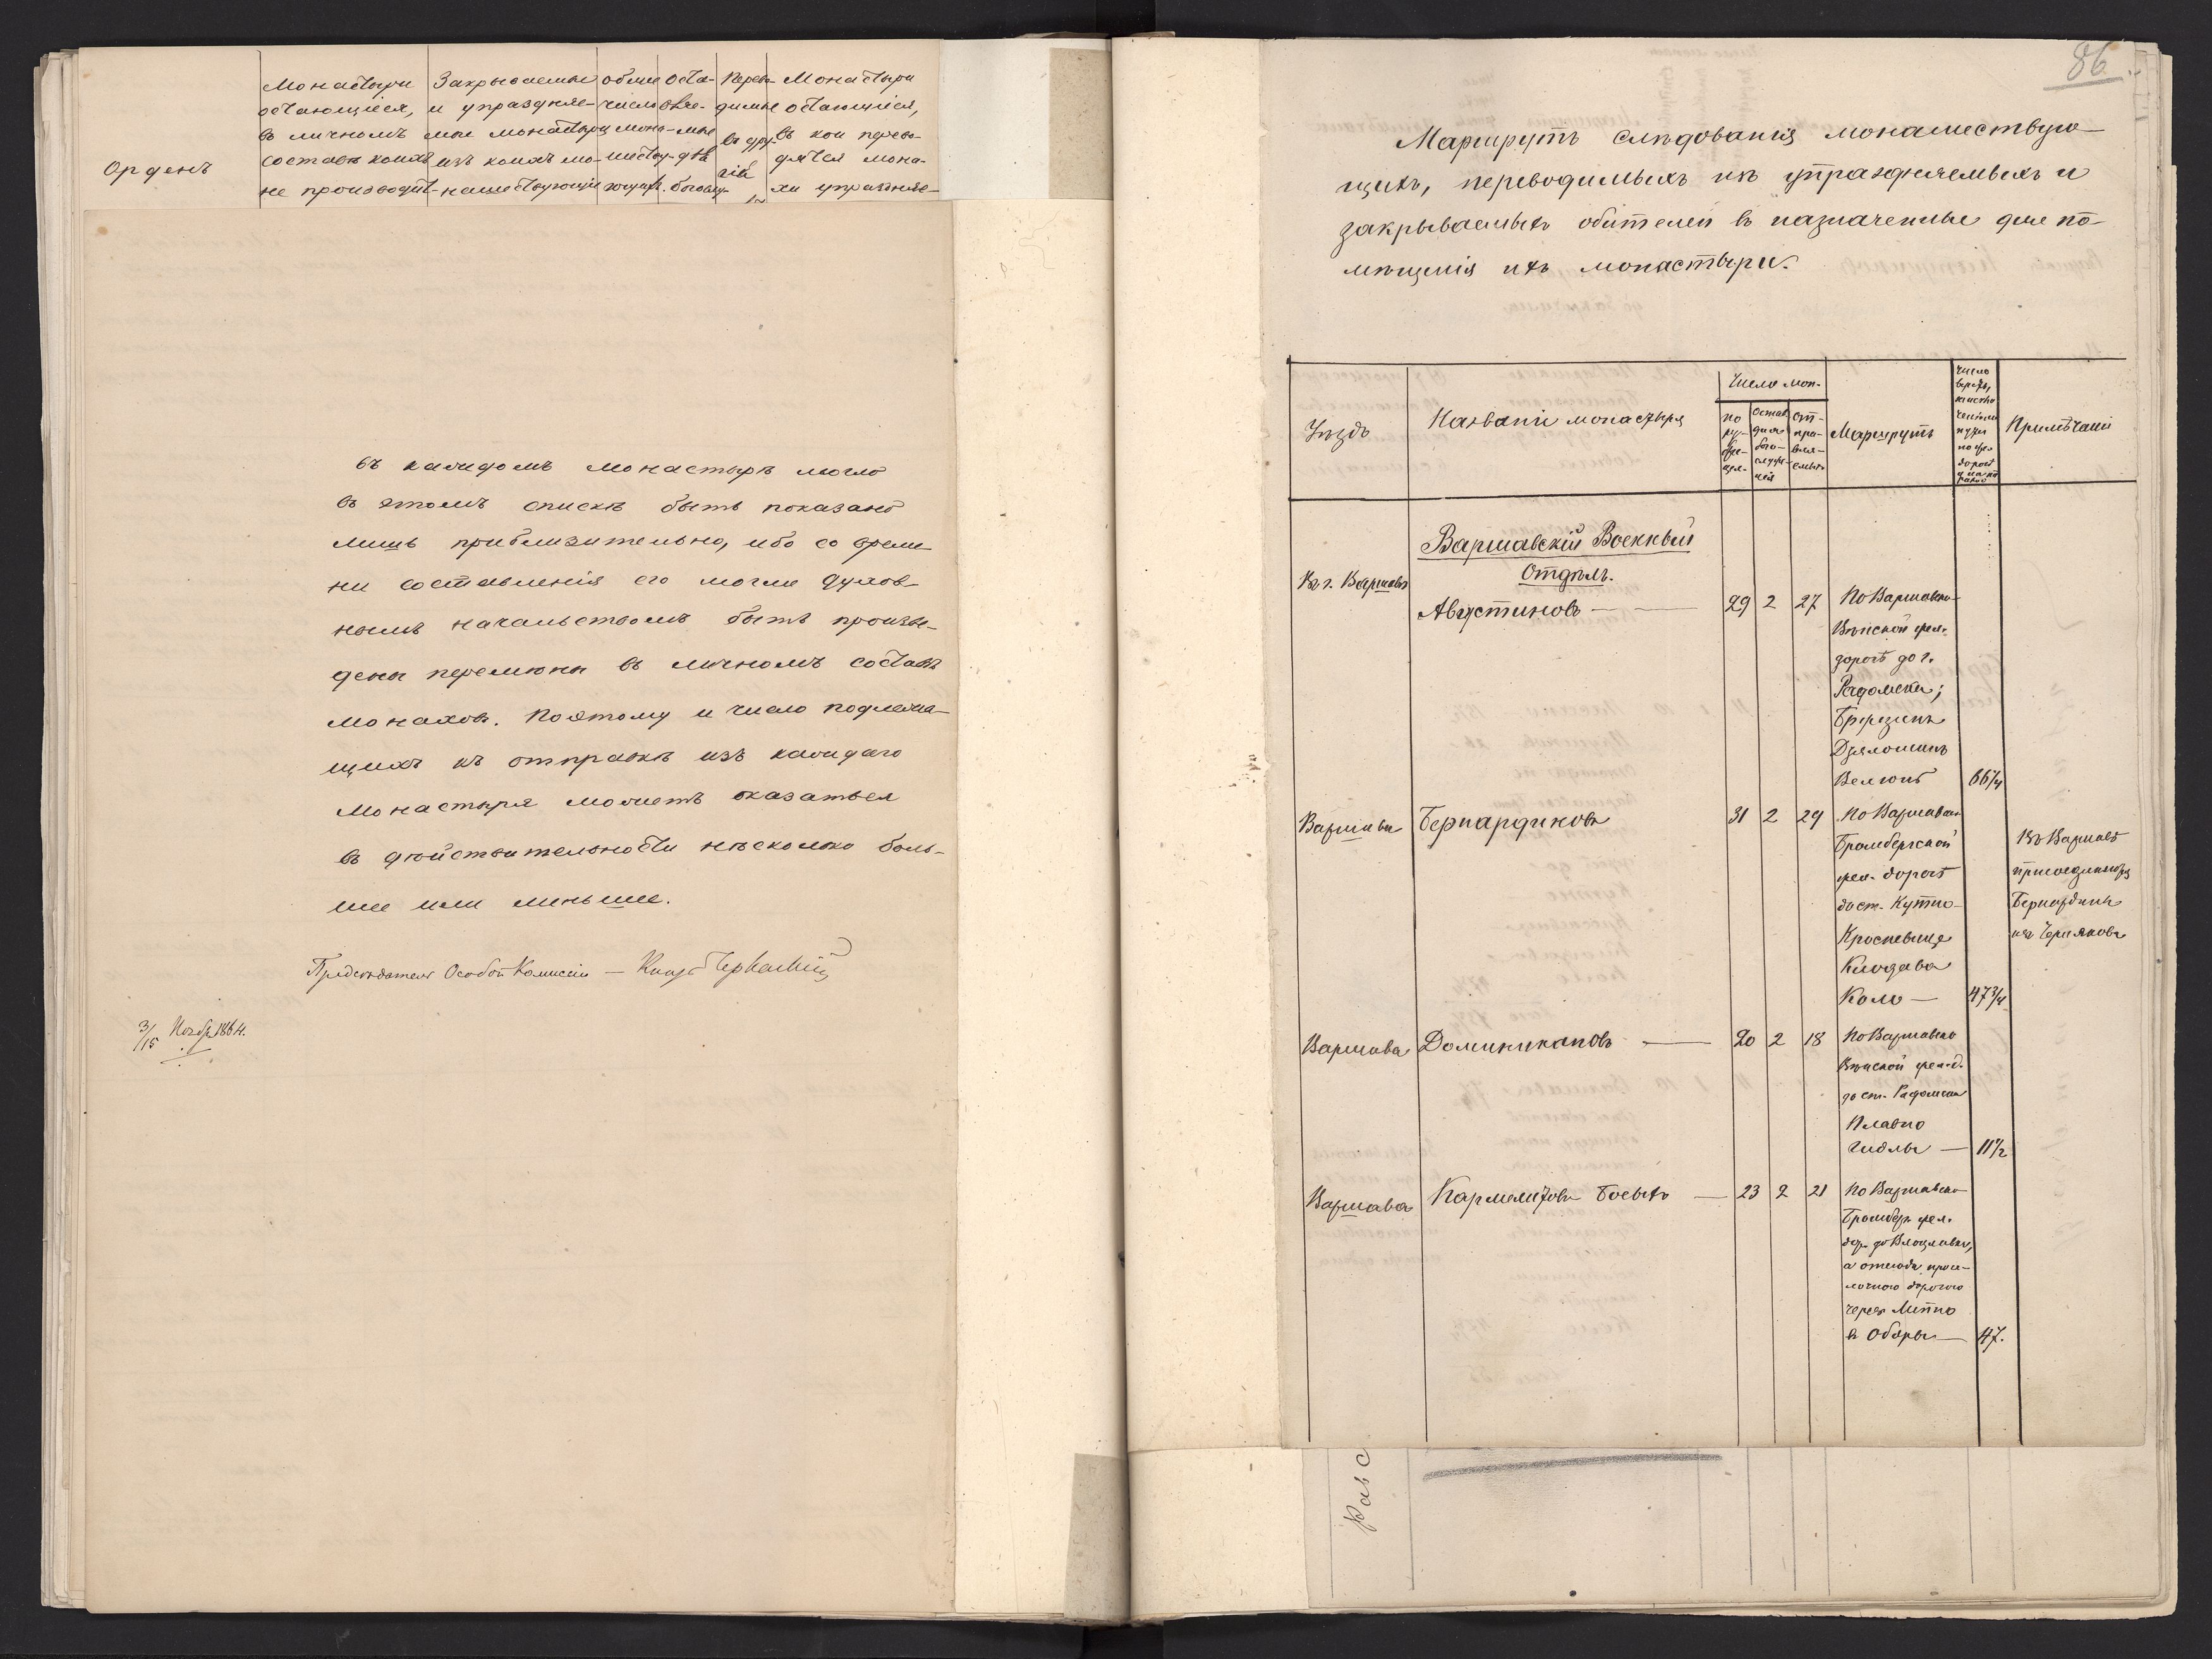 Орденъ
Монастыри
остающіеся,
въ личномъ
составѣ коихъ
не производит-
Закрываемые
и упраздняе-
мые монастыри
изъ коихъ мо-
нашествующіе
общее
число
мона-
шеству-
ющих.
Оста-
вляе-
мые
для
богослу-
Перево-
димые
въ дру-
гіе
Монастыри
остающіеся,
въ кои перево-
дятся мона-
хи упраздняе-
въ каждомъ монастырѣ могло
въ этомъ спискѣ быть показано
лишь приблизительно, ибо со време-
ни составленія его могли духов-
нымъ начальствомъ быть произве-
дены перемѣны въ личномъ составѣ
монаховъ. Поэтому и число подлежа-
щихъ къ отправкѣ изъ каждаго
монастыря можетъ оказаться
въ дѣйствительности нѣсколько боль-
шее или меньшее.
Предсѣдатель Особой Комисіи — Князь Черкаскій
3/15 Ноябр. 1864.
86.
Маршрутъ слѣдованія монашествую-
щихъ, переводимыхъ изъ упраздняемыхъ и
закрываемыхъ обителей въ назначенные для по-
мѣщенія ихъ монастыри.
Уѣздъ
Названіе монастыря
Число мон.
Остав
для
бого-
служе-
нія
от-
пра-
вляе-
мыхъ
Маршрутъ
Число
верстъ,
пути
дорогѣ
Примѣчаніе
Варшавскій Военный
Отдѣлъ.
Въ г. Варшавѣ
Августиновъ — 29 2 27 По Варшавско-
Вѣнской жел.
дорогѣ до г.
Радомска;
Бржезинъ
Дзялошинъ
Велюнь 66 1/4
Варшава Бернардиновъ 31 2 29 По Варшавско
Бромбергской
жел. дорогѣ
до ст. Кутно
Кросневице
Клодава
Коло — 47 3/4
Въ Варшавѣ
присоединяются
Бернардины
изъ Чернякова
Варшава Доминикановъ — 20 2 18 По Варшавско
Вѣнской жел. д.
до ст. Радомска
Плавно
Гидлы — 11 1/2
Варшава Кармелитовъ Босыхъ — 23 2 21 По Варшавско
Бромбер. жел.
дор. до Влоцлавка,
а отсюда просе-
лочною дорогою
черезъ Липно
въ Оборы — 47.
Расс